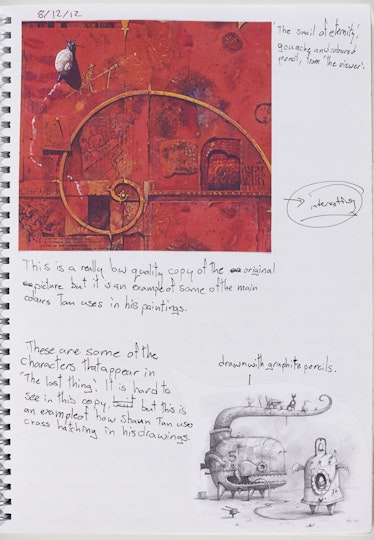 8/12/12
'The snail of eternity',
gouache and coloured
pencil, from 'the viewer'.
interesting
This is a really low quality copy of the original
picture but it is an example of some of the main
colours Tan uses in his paintings.
These are some of the
characters that appear in
'The lost thing'. It is hard to
see in this copy, but this is
an example of how Shaun Tan uses
cross hatching in his drawings.
drawn with graphite pencils.